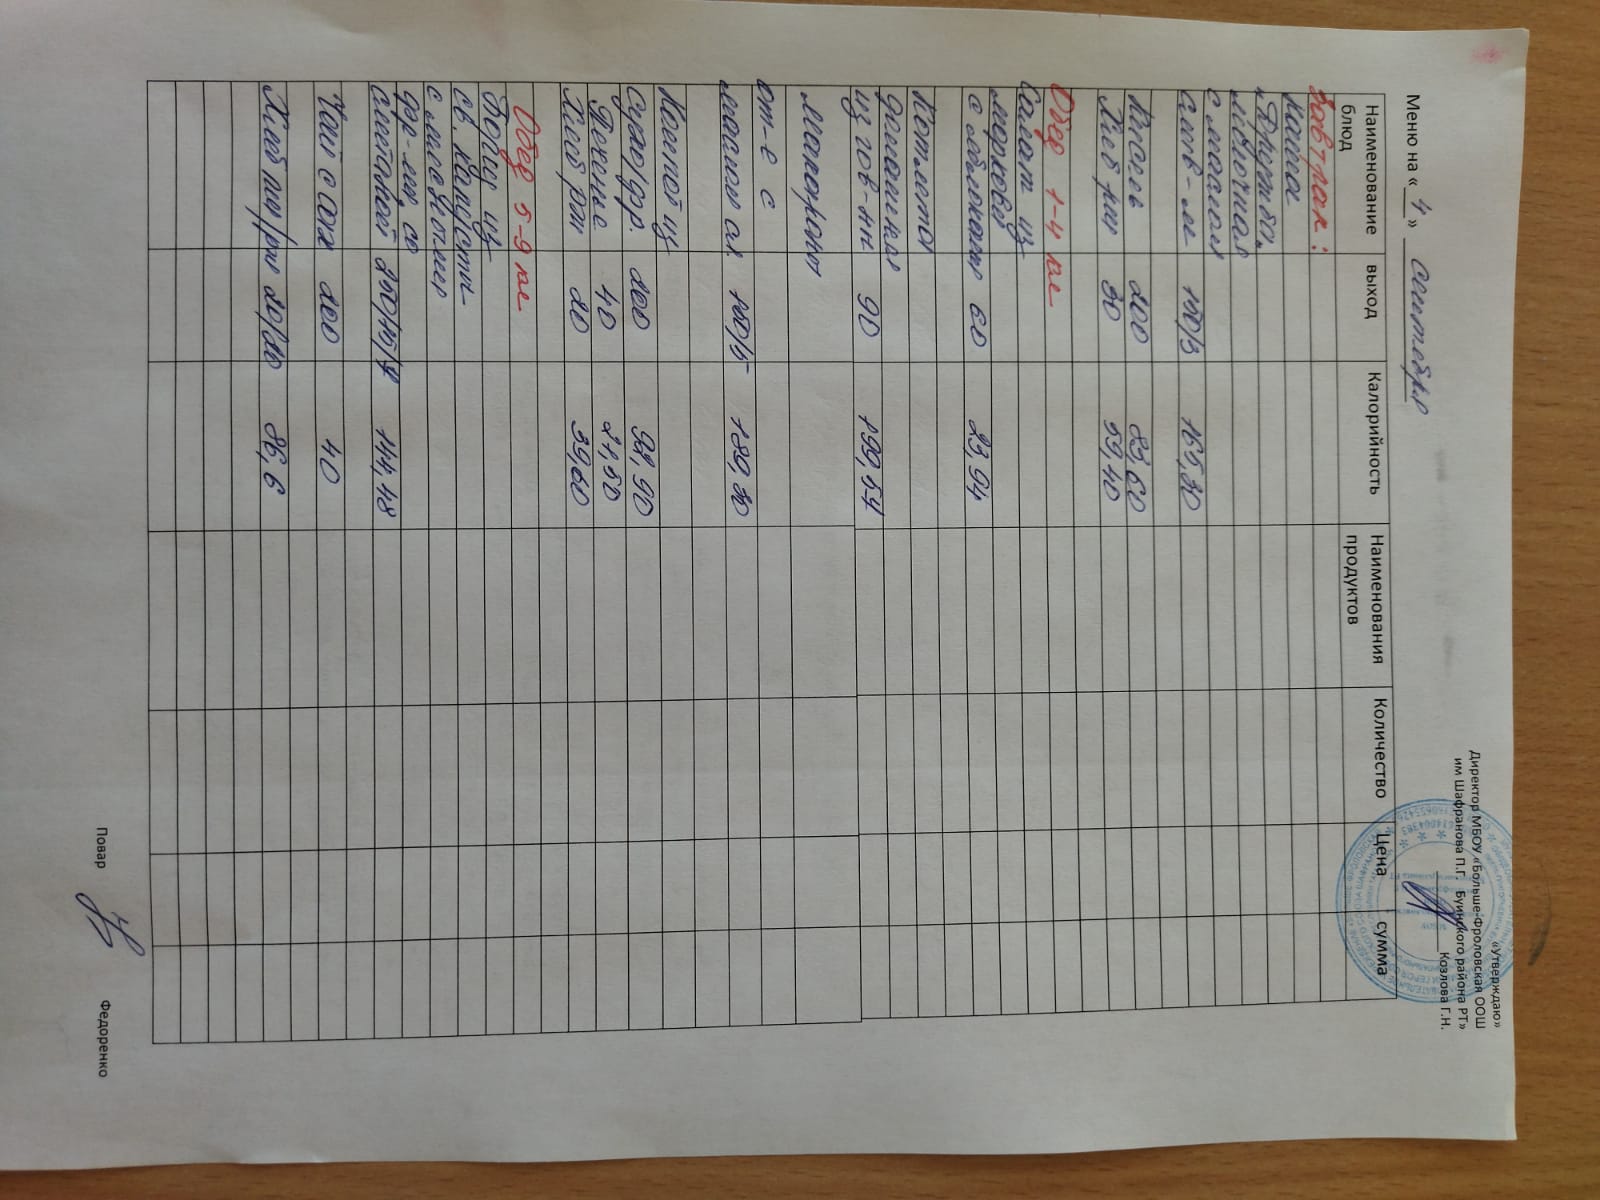 «Утверждаю»
Директор МБОУ «Больше-Фроловская ООШ
им Шафранова П.Г. Буинского района РТ»
Козлова Г.Н.
Меню на « 4 » сентября
Наименование блюд выход Калорийность Наименования продуктов Количество Цена сумма
Завтрак:
Каша
«Дружба»
молочная
с маслом
слив-м 150/3 165,30
Кисель 200 83,60
Хлеб рж 30 59,40
Обед 1-4 кл
Салат из
моркови
с яблоками 60 23,94
Котлета
домашняя
из гов-ны 90 199,54
макароны
от-е с
маслом сл. 150/5 189,30
Компот из
сухофр. 200 98,90
Печенье 40 21,50
Хлеб рж 20 39,60
Обед 5-9 кл
Борщ из
св. капусты
с мясокостн
фр-лек, со
сметаной 250/15/4 144,48
Чай с сах 200 40
Хлеб пш/рж 20/20 86,6
Повар Федоренко